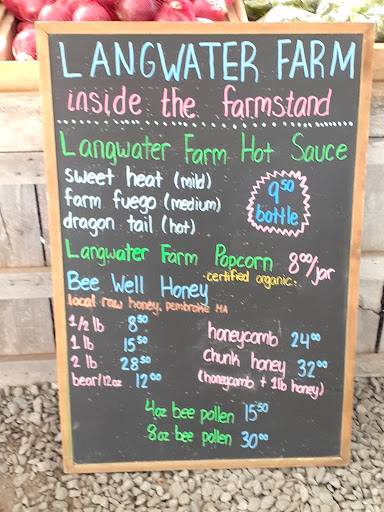 LANGWATER FARM
inside the farmstand
Langwater Farm Hot Sauce
sweet heat (mild)
farm fuego (medium)
dragon tail (hot)
9.50
bottle
Langwater Farm Popcorn 8.00/jar
certified organic.
Bee Well Honey
local raw honey, pembroke MA
1/2 lb 8.50
1 lb 15.50
2 lb 28.50
bear/12oz 12.00
honeycomb 24.00
chunk honey 32.00
(honeycomb + 1lb honey)
4oz bee pollen 15.50
8oz bee pollen 30.00